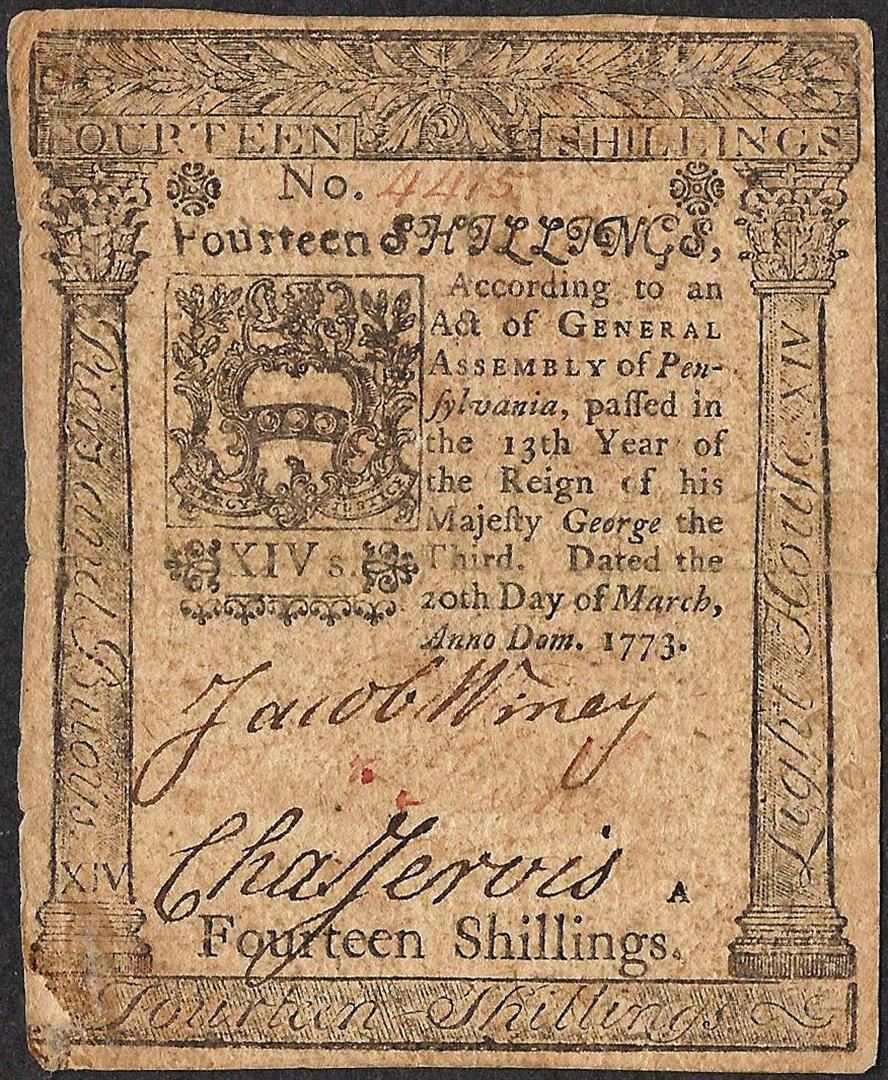 FOURTEEN SHILLINGS
No. 4415
Fourteen SHILLINGS,
According to an
Act of GENERAL
ASSEMBLY of Pen-
ſylvania, paſſed in
the 13th Year of
the Reign of his
Majeſty George the
Third. Dated the
20th Day of March,
Anno Dom. 1773.
MERCY JUSTICE
XIV s.
Piers and Buoys
XIV
Light Houſe. XIV
Jacob Winey
Cha Jervis
A
Fourteen Shillings.
Fourteen Shillings